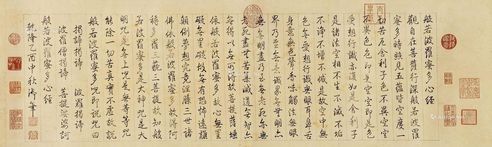 般若波羅蜜多心經
觀自在菩薩行深般若波羅
蜜多時照見五蘊皆空度一
切苦厄舍利子色不異空空
不異色色即是空空即是色
受想行識亦復如是舍利子
是諸法空相不生不滅不垢
不淨不增不減是故空中無
色無受想行識無眼耳鼻舌
身意無色聲香味觸法無眼
界乃至無意識界無無明亦
無無明盡乃至無老死亦無
老死盡無苦集滅道無智亦
無得以無所得故菩提薩埵
依般若波羅蜜多故心無罣
礙無罣礙故無有恐怖遠離
顛倒夢想究竟涅槃三世諸
佛依般若波羅蜜多故得阿
耨多羅三藐三菩提故知般
若波羅蜜多是大神咒是大
明咒是無上咒是無等等咒
能除一切苦真實不虛故說
般若波羅蜜多咒即說咒曰
揭諦揭諦 波羅揭諦
波羅僧揭諦 菩提薩婆訶
般若波羅蜜多心經
乾隆乙酉中秋御筆